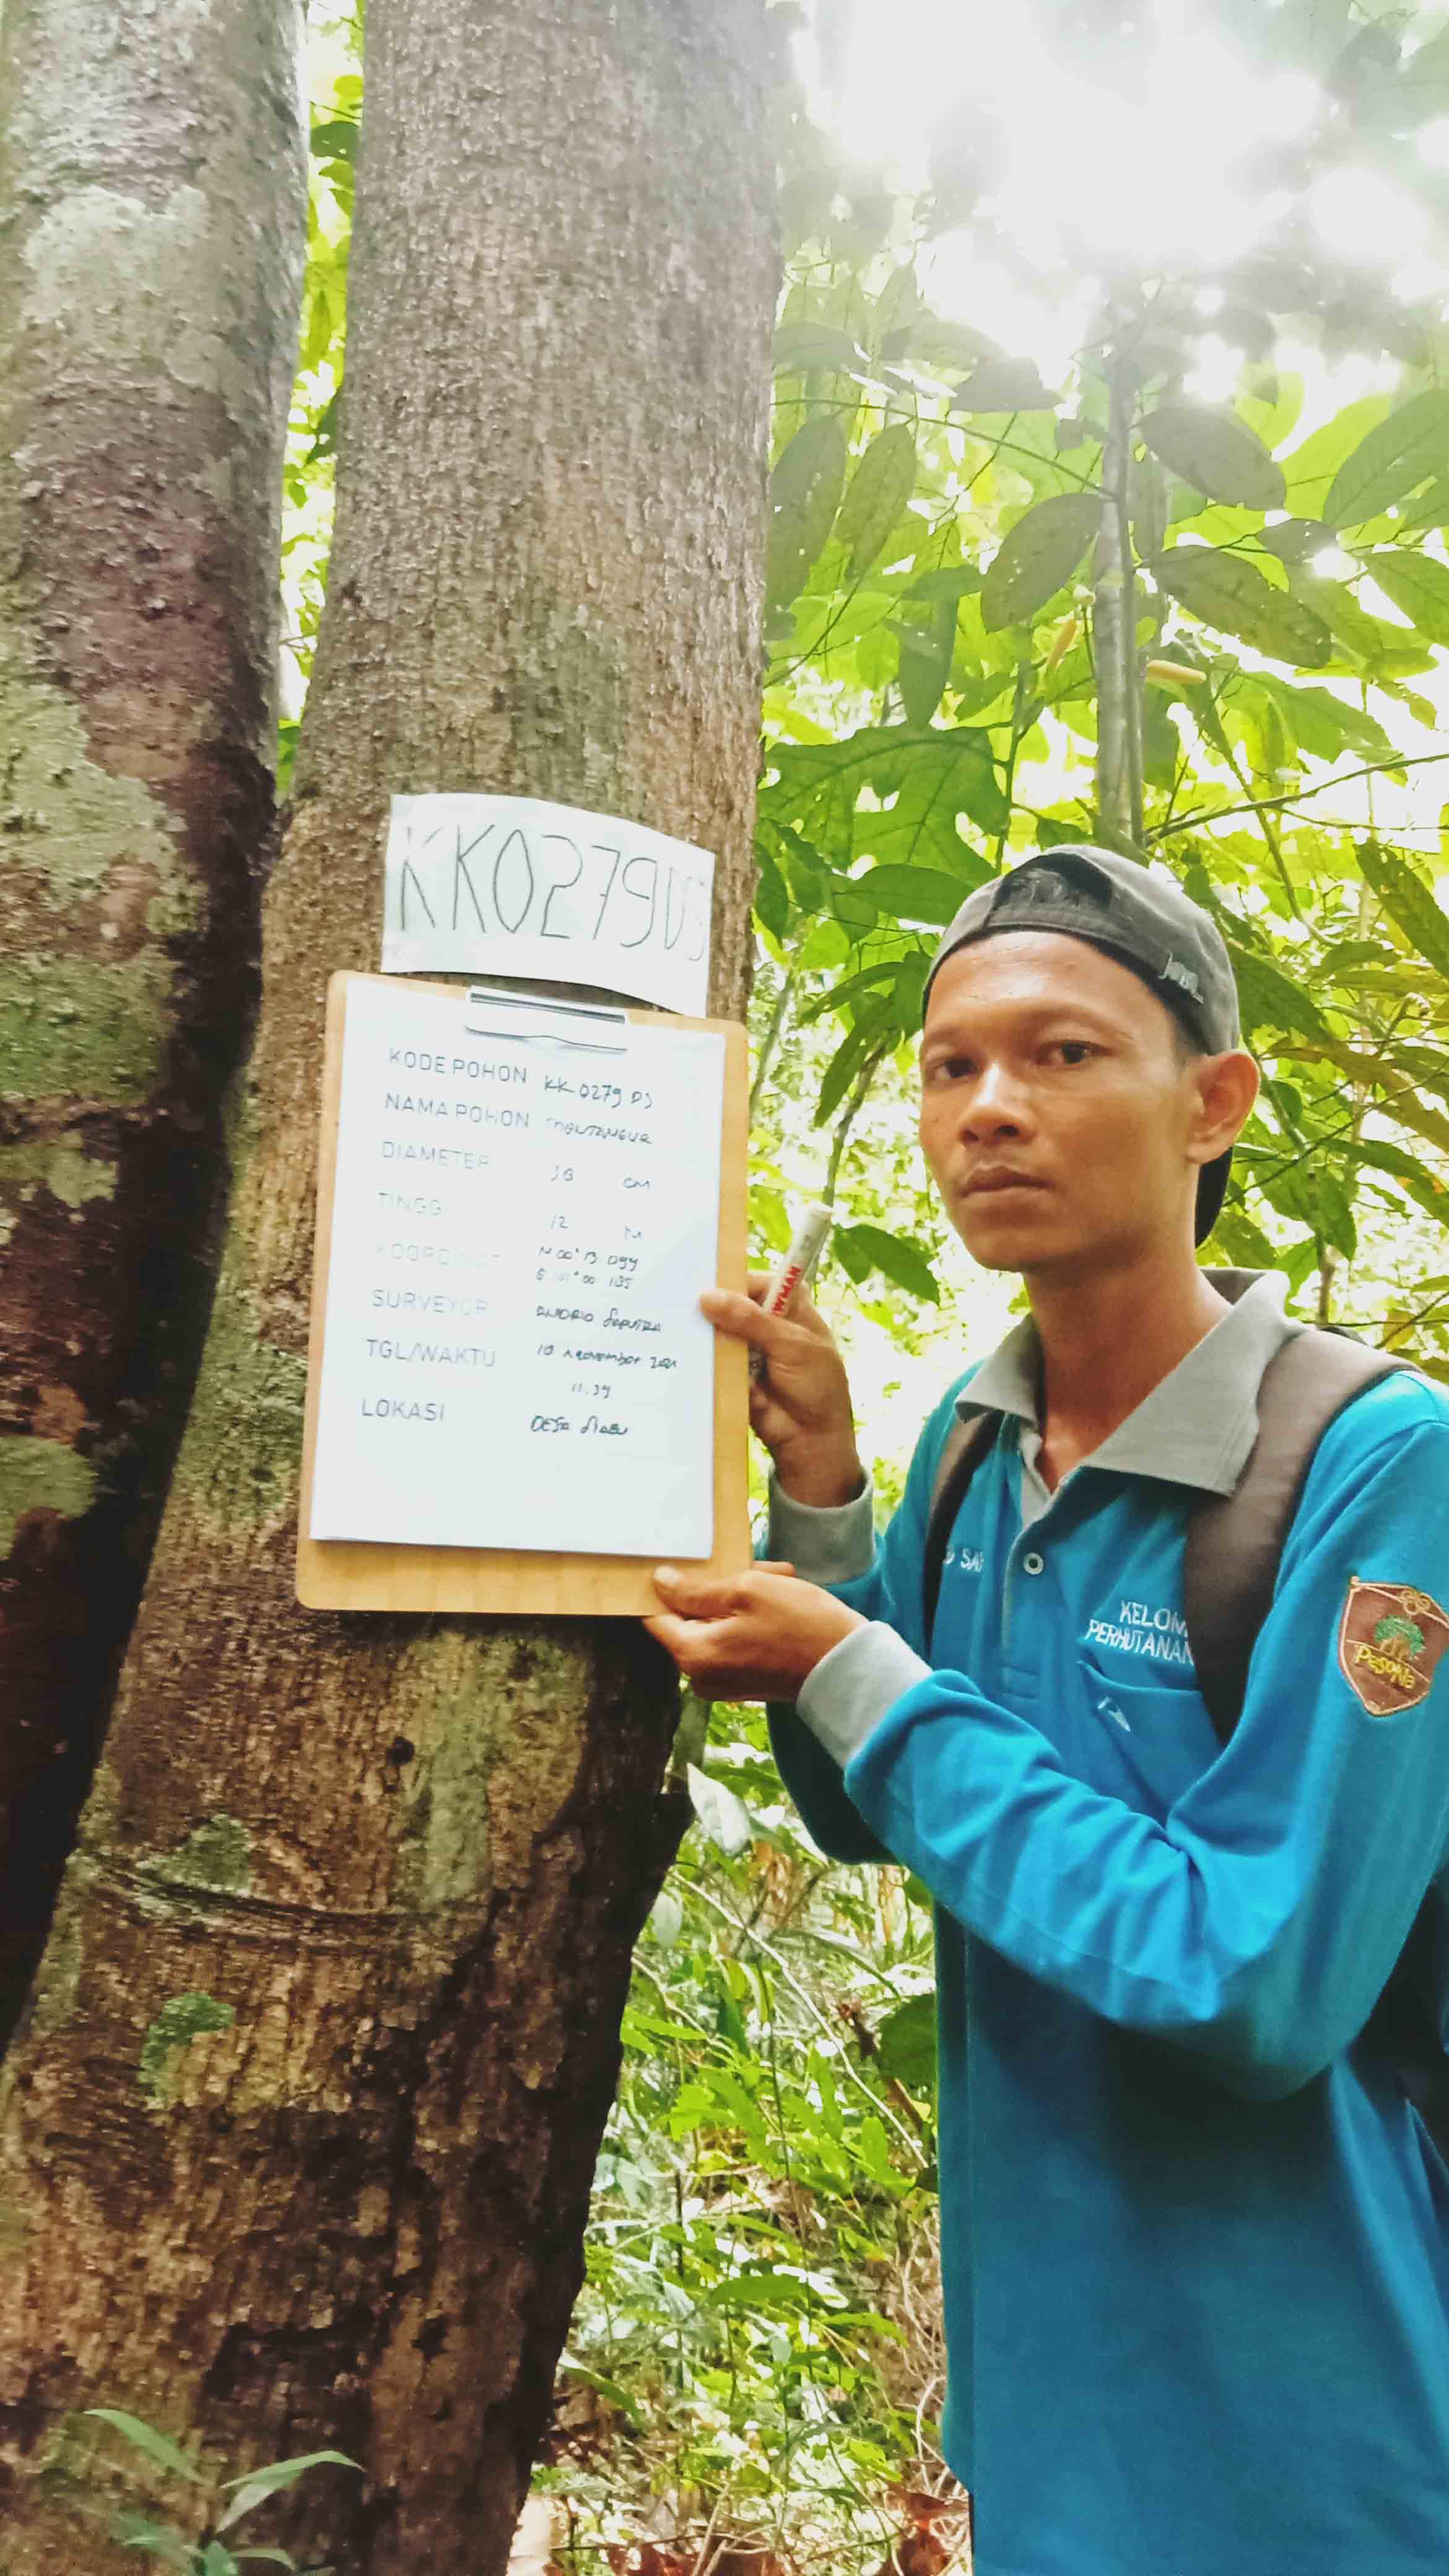 KK0279DS
KODE POHON KK 0279 DS
NAMA POHON
DIAMETER 38 CM
TINGGI 12 M
KOORDINAT N 00° 13 099
E 00 185
SURVEYOR ANDRIO SAPUTRA
TGL/WAKTU 10 November 2021
11.39
LOKASI DESA SIABU
SNOWMAN
KELOM
PERHUTANAN
PESONA